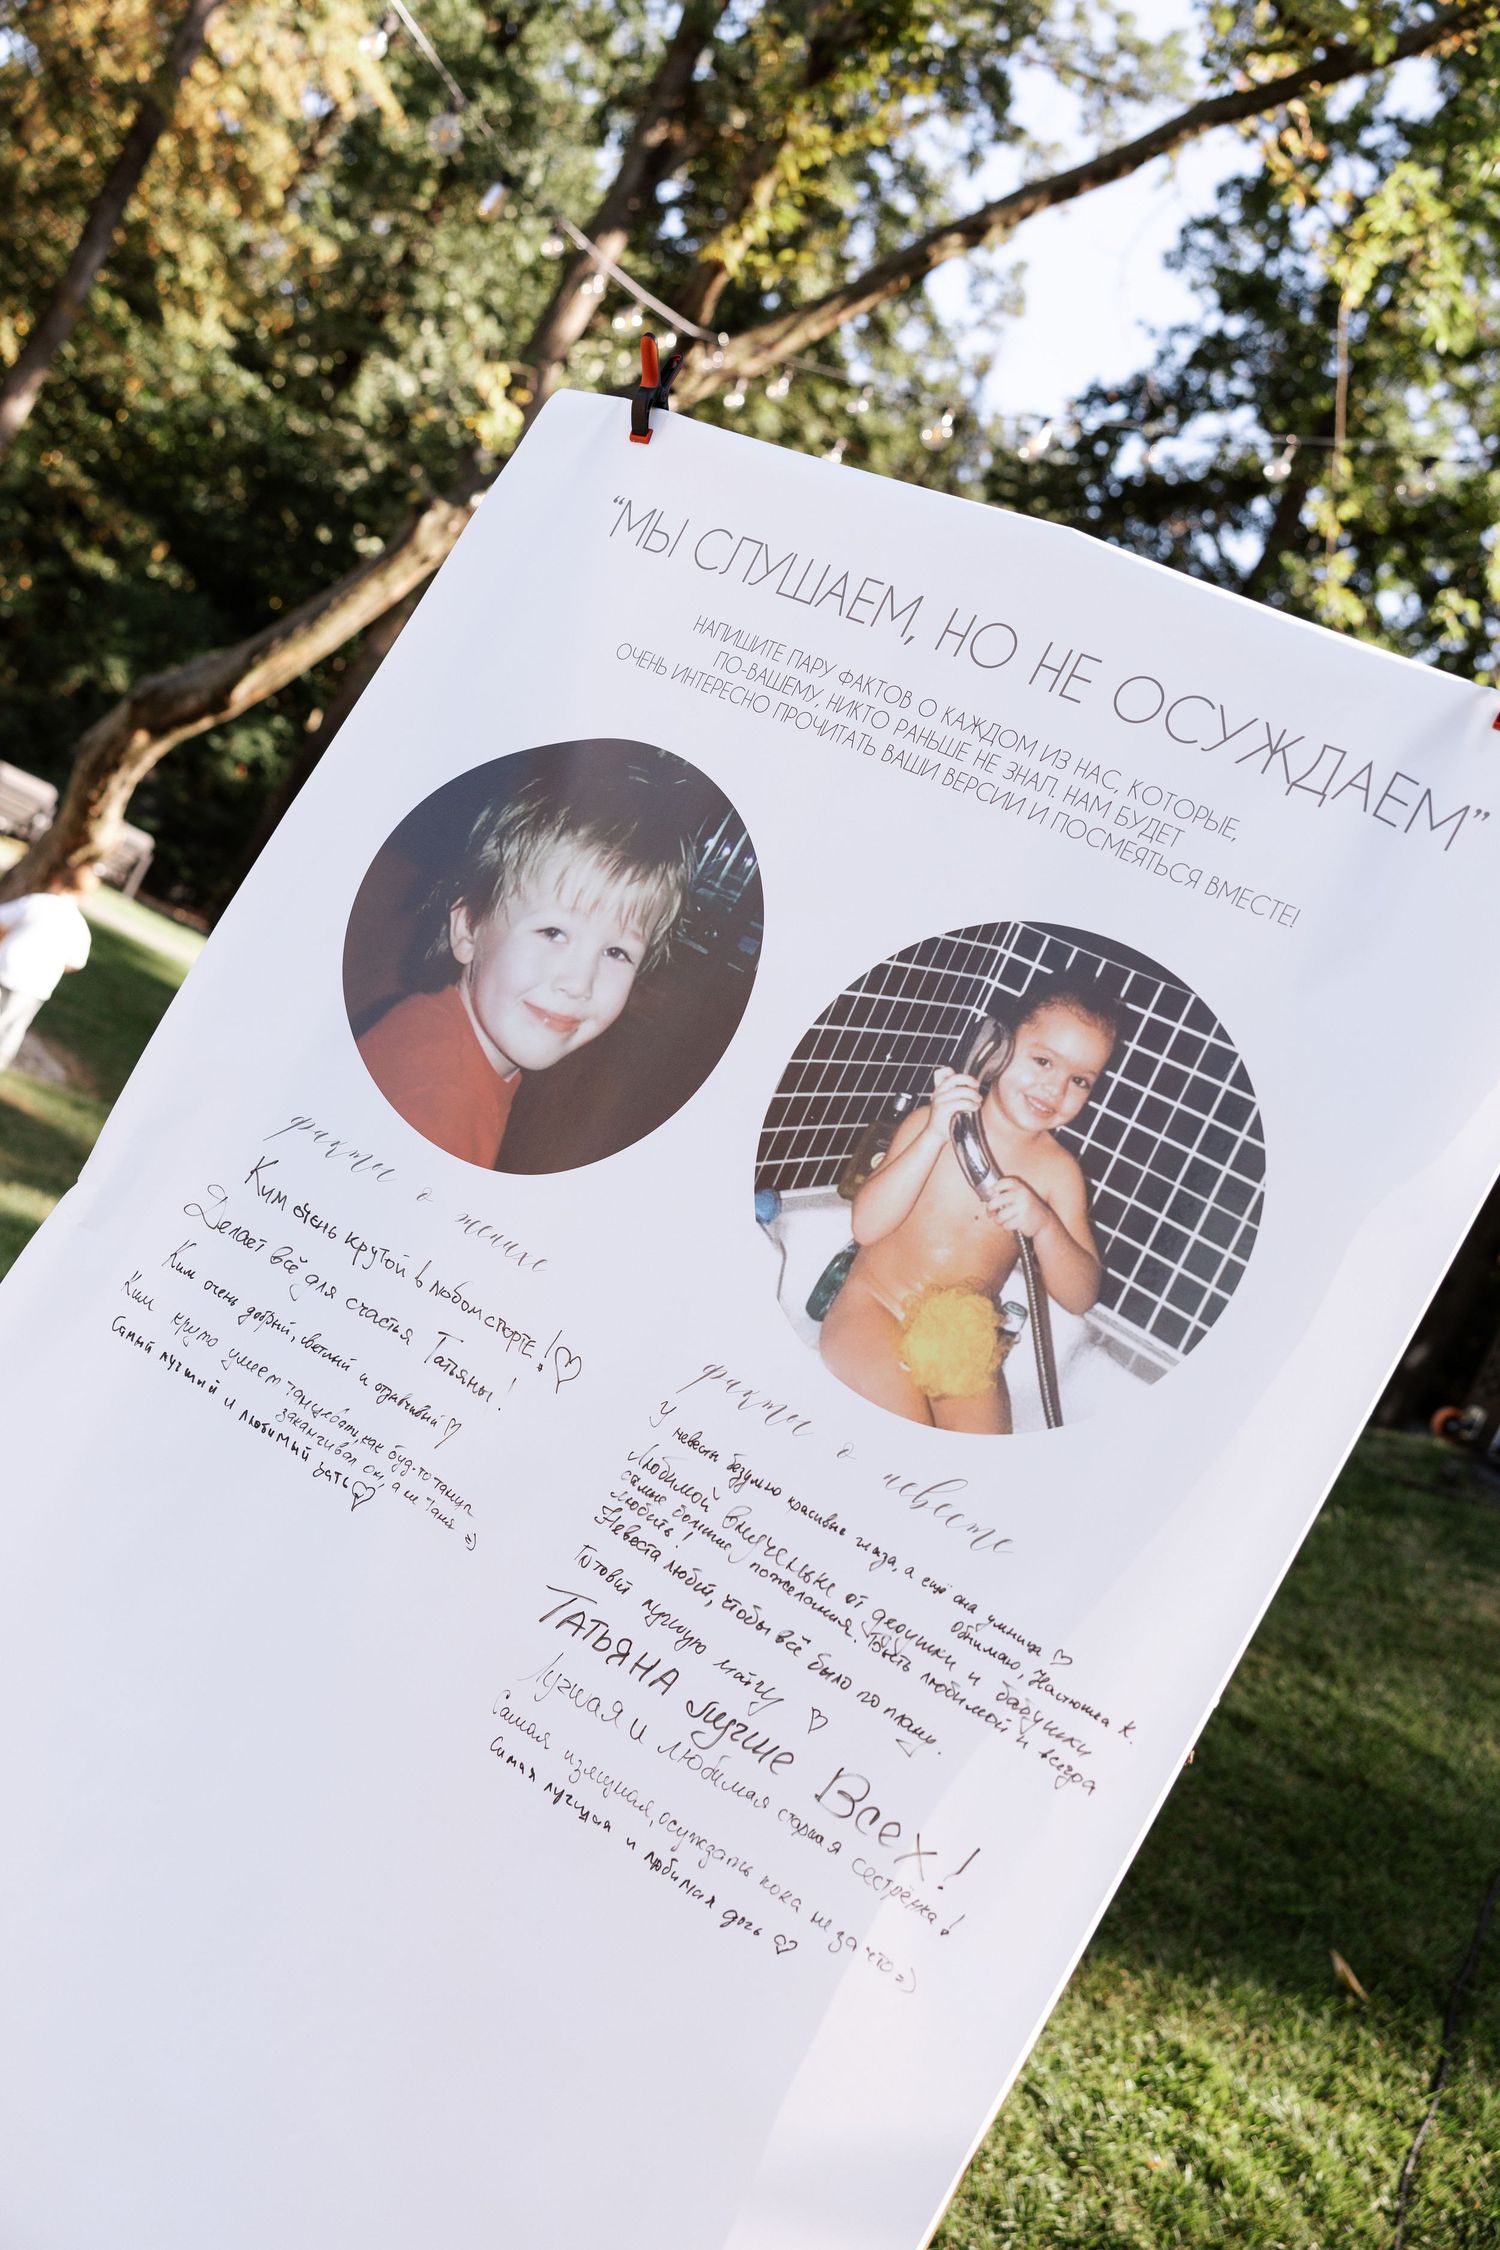 “МЫ СЛУШАЕМ, НО НЕ ОСУЖДАЕМ”
НАПИШИТЕ ПАРУ ФАКТОВ О КАЖДОМ ИЗ НАС, КОТОРЫЕ,
ПО-ВАШЕМУ, НИКТО РАНЬШЕ НЕ ЗНАЛ. НАМ БУДЕТ
ОЧЕНЬ ИНТЕРЕСНО ПРОЧИТАТЬ ВАШИ ВЕРСИИ И ПОСМЕЯТЬСЯ ВМЕСТЕ!
факты о женихе
Ким очень крутой в любом спорте! ♡
Делает всё для счастья Татьяны!
Ким очень добрый, светлый и отзывчивый ♡
Ким круто умеет танцевать, как буд-то танцы
заканчивал он, а не Таня =)
Самый лучший и любимый зять ♡
факты о невесте
У невесты безумно красивые глаза, а ещё она умница ♡
Обнимаю, Настюшка К.
Любимой внученьке от дедушки и бабушки
самые большие пожелания. Быть любимой и всегда
любить!
Невеста любит, чтобы всё было по плану.
Готовит лучшую матчу ♡
ТАТЬЯНА лучше Всех!
Лучшая и любимая старшая сестрёнка!
Самая изящная, осуждать пока не за что =)
Самая лучшая и любимая дочь ♡